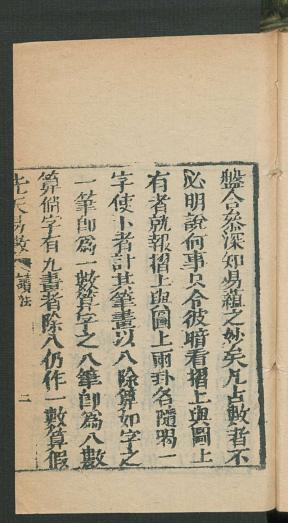 盤合參深知易蘊之妙矣凡占數者不
必明說何事只令彼暗看摺上與圖上
有者就報摺上與圖上兩卦名隨寫一
字使卜者計其筆畫以八除算如字之
一筆卽爲一數算字之八筆卽爲八數
算倘字有九畫者除八仍作一數算假
先天易數 讀法 二